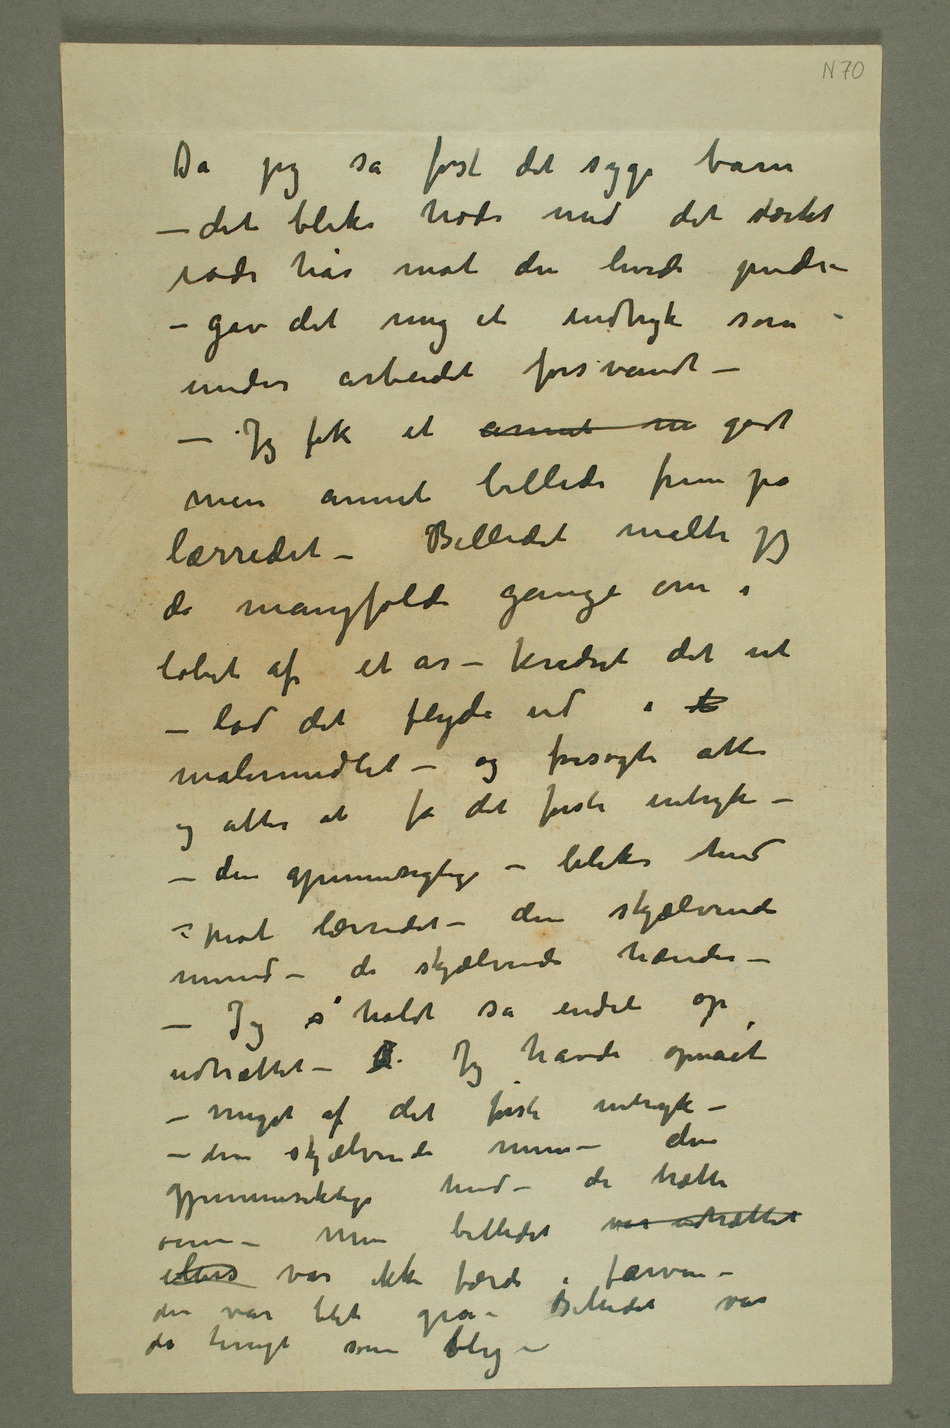 N 70
Da jeg så først det syge barn
– det bleke hode med det stærkt
røde hår mot den hvide pude –
– gav det mig et indtryk som
under arbeidet forsvandt –
– Jeg fik et annet m godt
men annet billede frem på
lærredet – Billedet malte jeg
da mangfoldi gange om i
løbet af et år – kradset det ut
– lod det flyde ud i t
malermedlet – og forsøgte atter
og atter at få det første intryk –
– den gjennemsigtige – bleke hud
mot lærredet – den skjælvende
mund – de skjælvende hænder –
– Jeg s holdt så endel op
udtrættet – Jeg havde opnået
– meget af det første intryk –
– den skjælvende mun – den
gjennemsiktige hud – de trætte
øine – Men billedet var udtrættet
ellers var ikke færdi i farven –
den var blet grå – Billedet var
da tungt som bly –